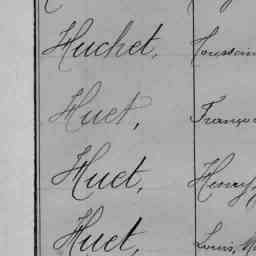 Huchet, Toussain
Huet, Franço
Huet, Henry,
Huet, Louis, M